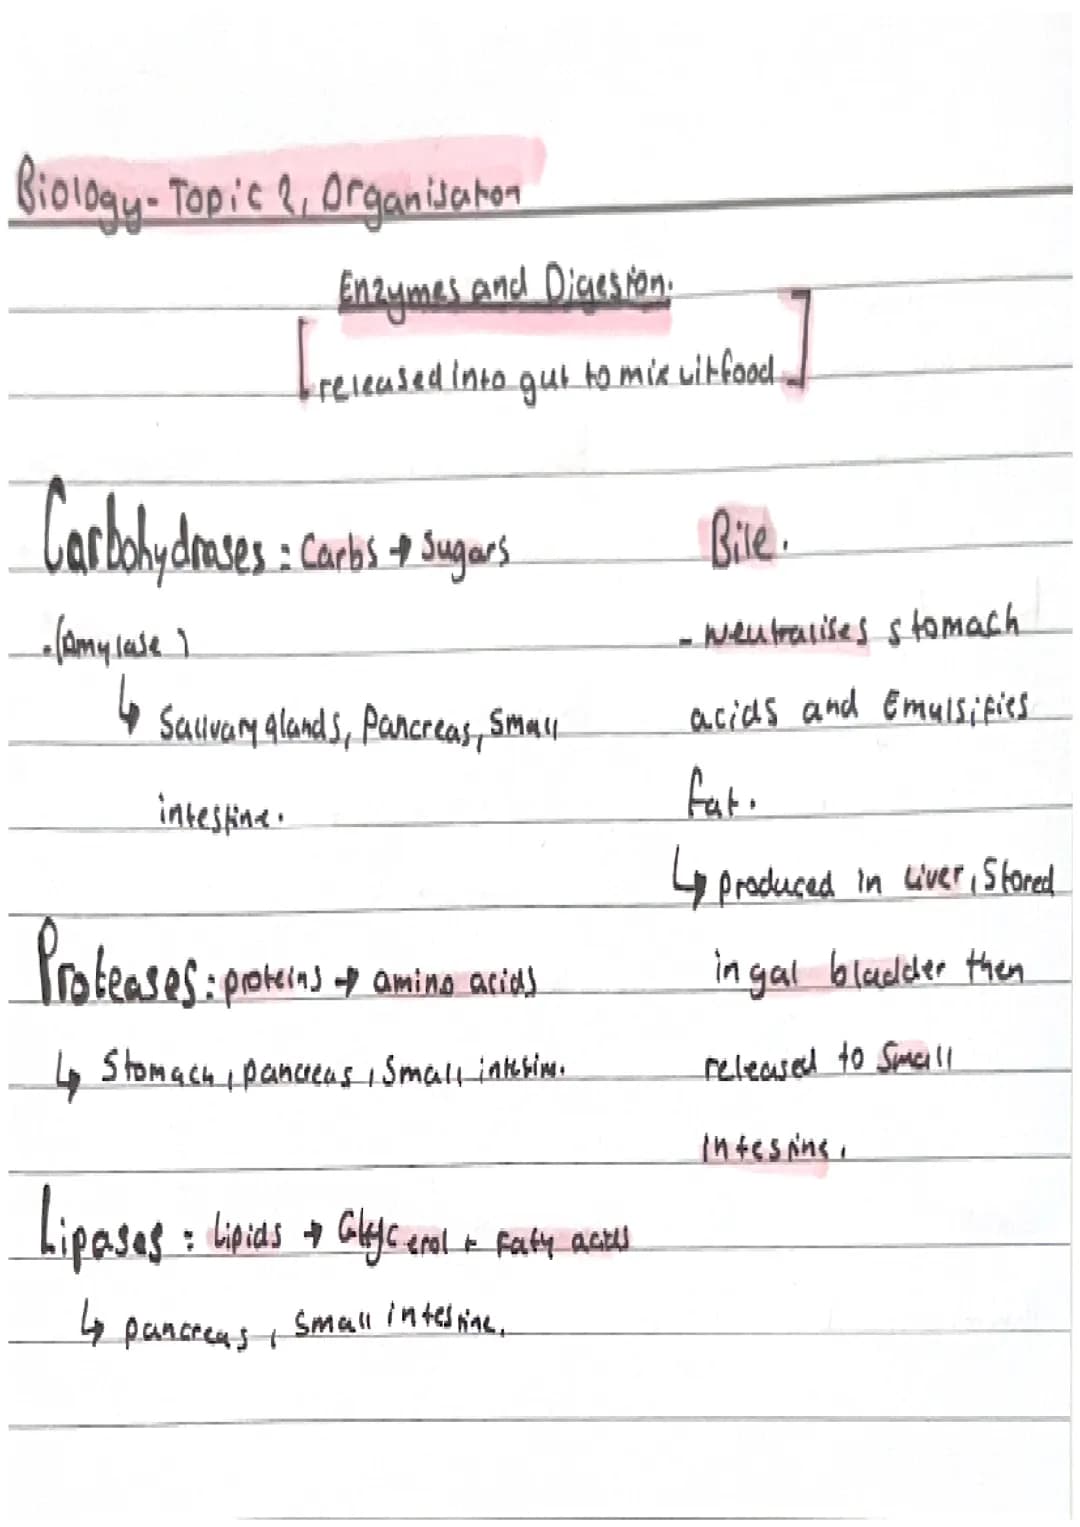 Biology- Topic 2, Organisation
Enzymes and Digestion.
[released into gut to mix wit food]
Carbohydrases : Carbs → Sugars
-(Amylase)
↳ Salivary glands, Pancreas, Small
intestine.
Proteases : proteins → amino acids
↳ Stomach, pancreas, Small intestine.
Lipases : Lipids → Glycerol + Fatty acids
↳ pancreas, small intestine.
Bile.
- Neutralises stomach
acids and Emulsifies
fat.
↳ produced in Liver, Stored
in gal bladder then
released to Small
Intestine.